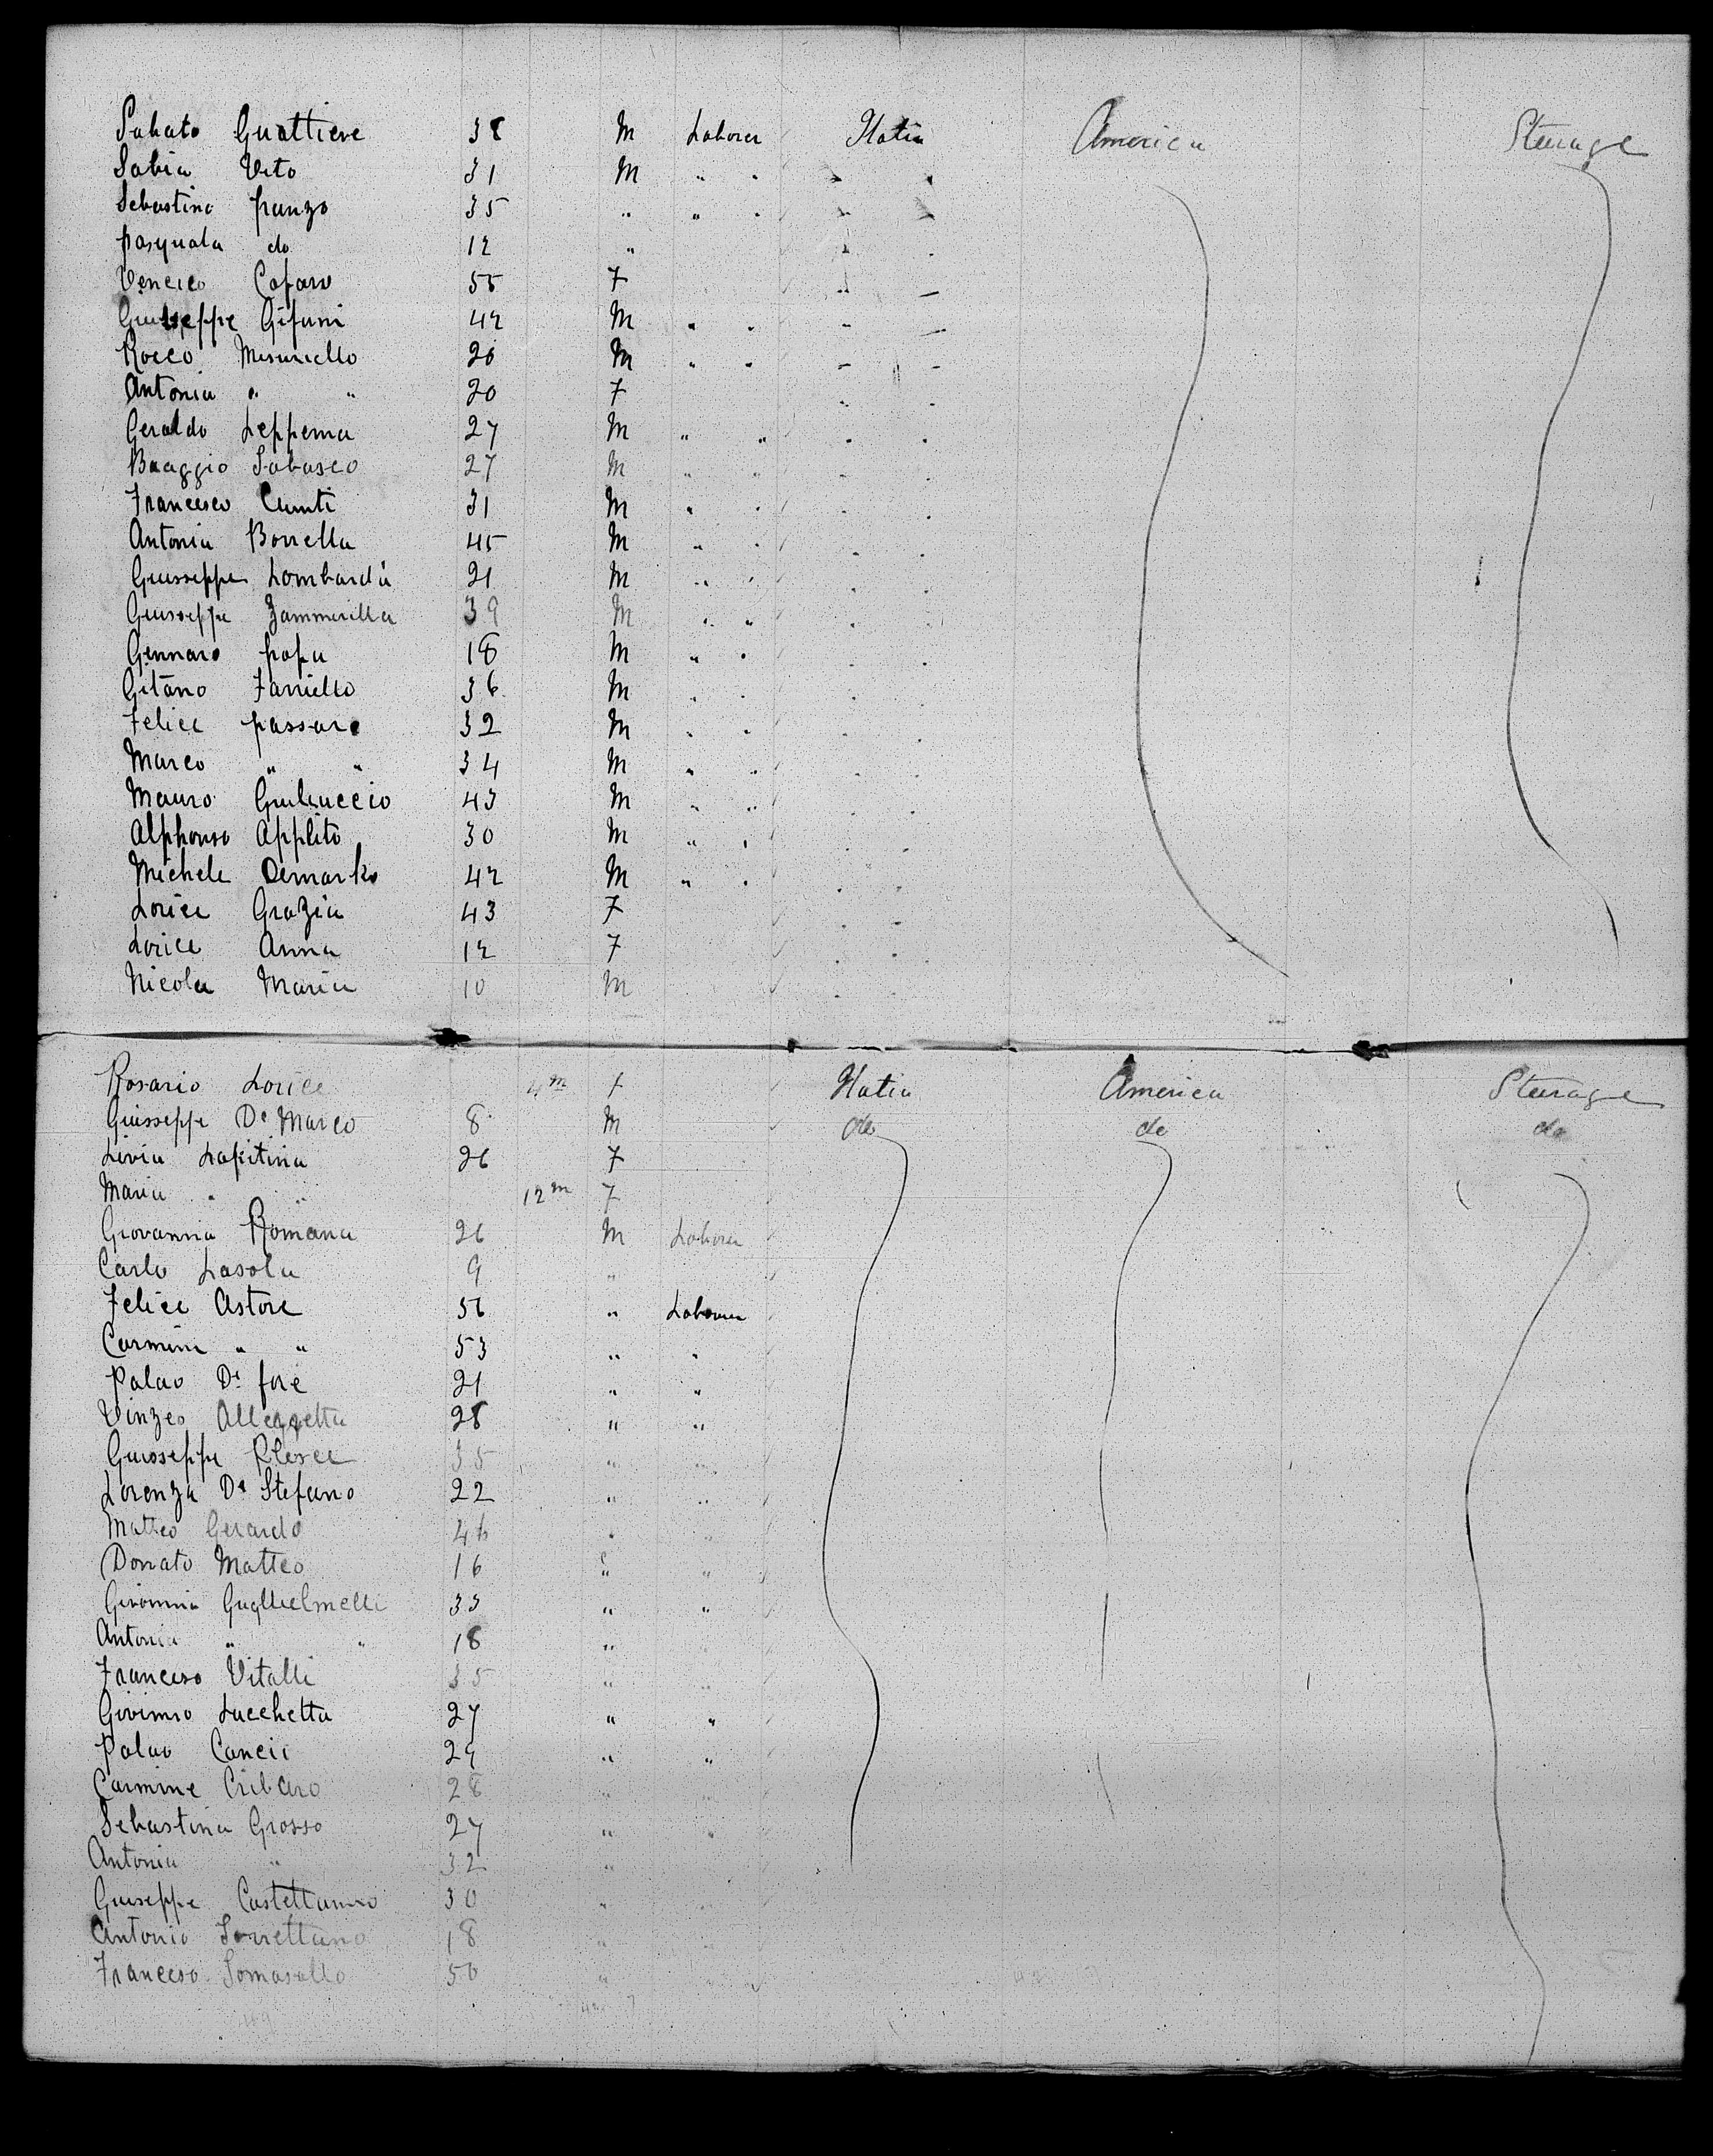 Sabato Gualtiere 38 M Laborer Italia America Steerage
Sabia Vito 31 M " "
Sebastino franzo 35 " " "
pasquala do 12 "
Vencico Cafaro 55 F
Guiseppe Gifuni 42 M " "
Rocco Misuriello 26 M " "
Antonia " " 20 F
Geraldo Leppema 27 M " "
Biaggio Sabasco 27 M " "
Francesco Cunti 31 M " "
Antonia Borrella 45 M " "
Guisseppe Lombarda 21 M " "
Guisseppe Zammerilla 39 M " "
Gennaro papa 18 M " "
Gitano Farriello 36 M " "
Felice passaro 32 M " "
Marco " " 34 M " "
Mauro Guiliuccio 43 M " "
Alphonso Applito 30 M " "
Michele Demarko 42 M " "
Lorice Grazia 43 F
Lorice Anna 12 F
Nicola Maria 10 M
Rosario Lorice 4m f Italia America Steerage
Guisseppe De Marco 8 M do do do
Livia Lapitina 26 F
Maria " " 12m F
Giovannia Romana 26 M Laborer
Carlo Lasola 9 "
Felice Astore 56 " Laborer
Carmine " " 53 " "
Palao De fore 21 " "
Vinzeo Allegretta 28 " "
Guisseppe 35 " "
Lorenza De Stefano 22 " "
Matteo Gerardo 46 " "
Donato Matteo 16 " "
Givomnia Gugllielmelli 33 " "
Antonia " " 18 " "
Franceso Vitalli 35 " "
Givimio Lucchetta 27 " "
Palao Cancii 29 " "
Carmine Cribaro 28 " "
Sebastina Grosso 27 " "
Antonia " 32 "
Guiseppe Castettanno 30 " "
Antonio Sorrettano 18 " "
Franceso Somasallo 50 " "